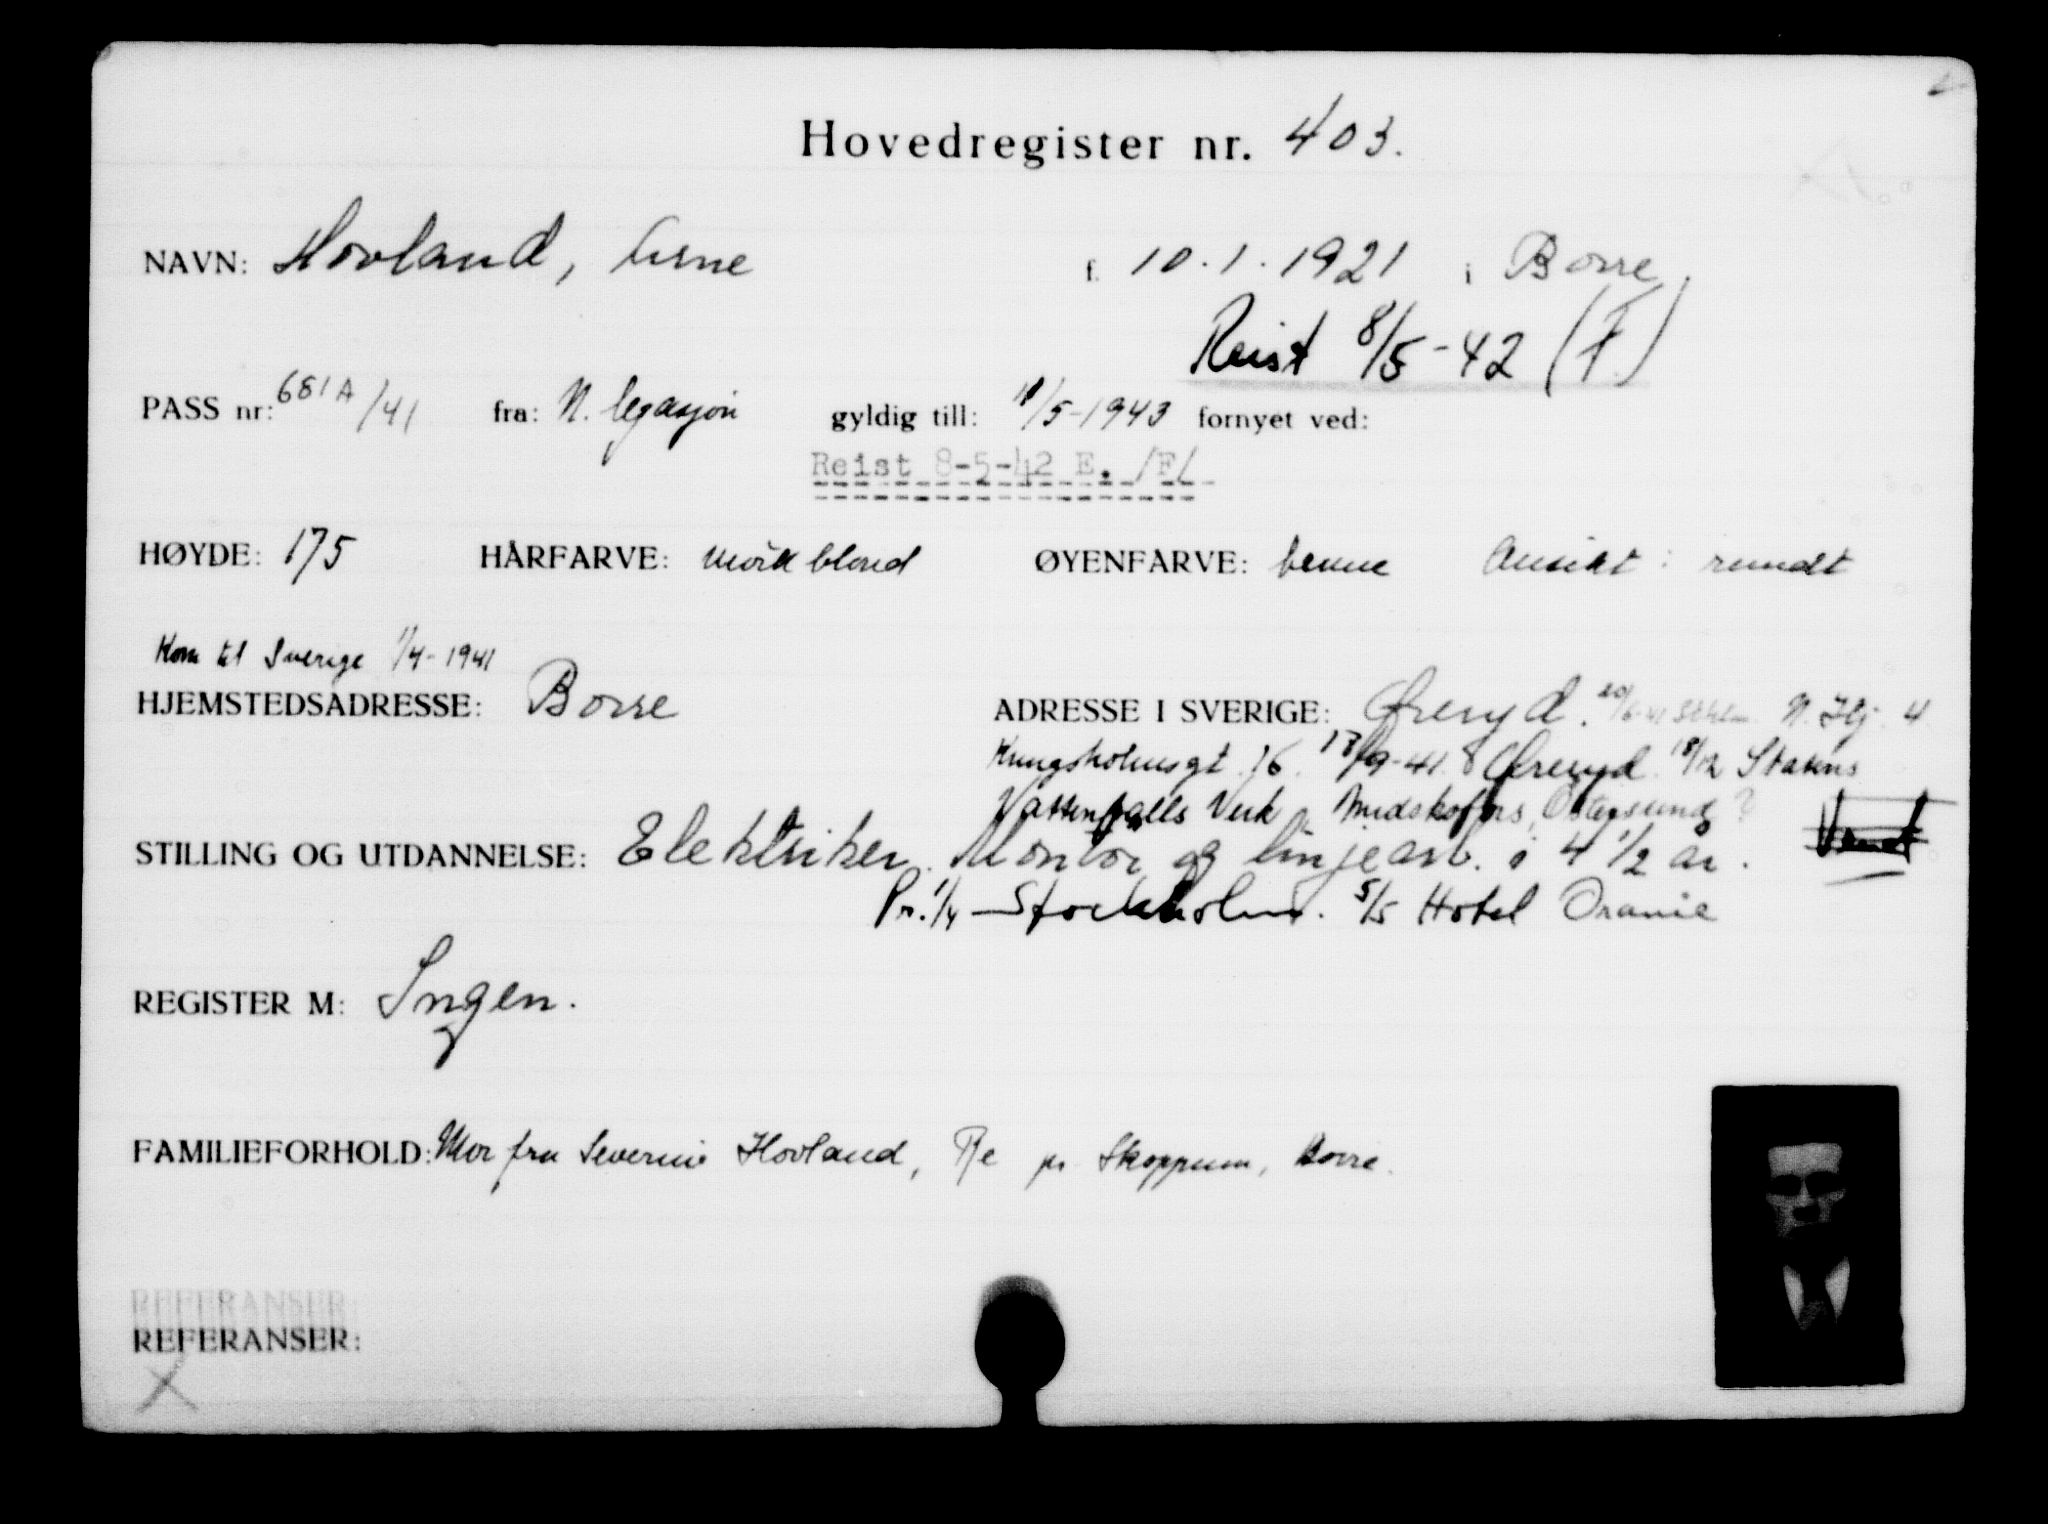 Hovedregister nr. 403.
NAVN: Hovland, Arne f. 10.1.1921 i Borre.
Reist 8/5-42 (F)
PASS nr: 681A/41 fra: N. legasjon gyldig till: /5-1943 fornyet ved:
Reist 8-5-42 E. /F/
HØYDE: 175 HÅRFARVE: mörk blond ØYENFARVE: Ansikt: rundt
Kom til Sverige 1/4-1941
HJEMSTEDSADRESSE: Borre ADRESSE I SVERIGE: Øreryd. N. 4
Kungsholmsgt. 16. 13/9-41 Øreryd. 18/12 Statens
Vattenfalls Verk, Midskogfors, Östersund?
STILLING OG UTDANNELSE: Elektriker. Montör og linjearb. i 4 1/2 år. Vend
Pr. 1/4 Stockholm. 5/5 Hotel Oranie
REGISTER M: Ingen.
FAMILIEFORHOLD: Mor fru Severine Hovland, Re pr. Skoppum, Borre.
REFERANSER:
REFERANSER:
X